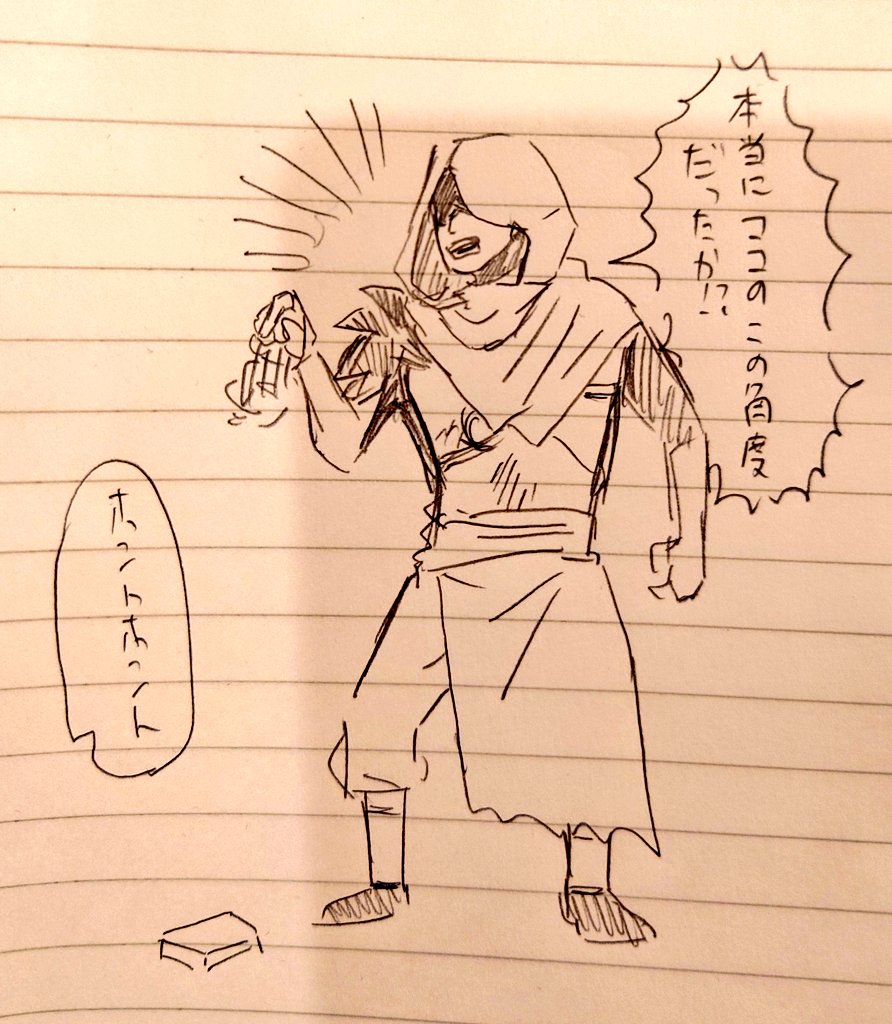 本当にココのこの角度
だったか!?
ホントホント